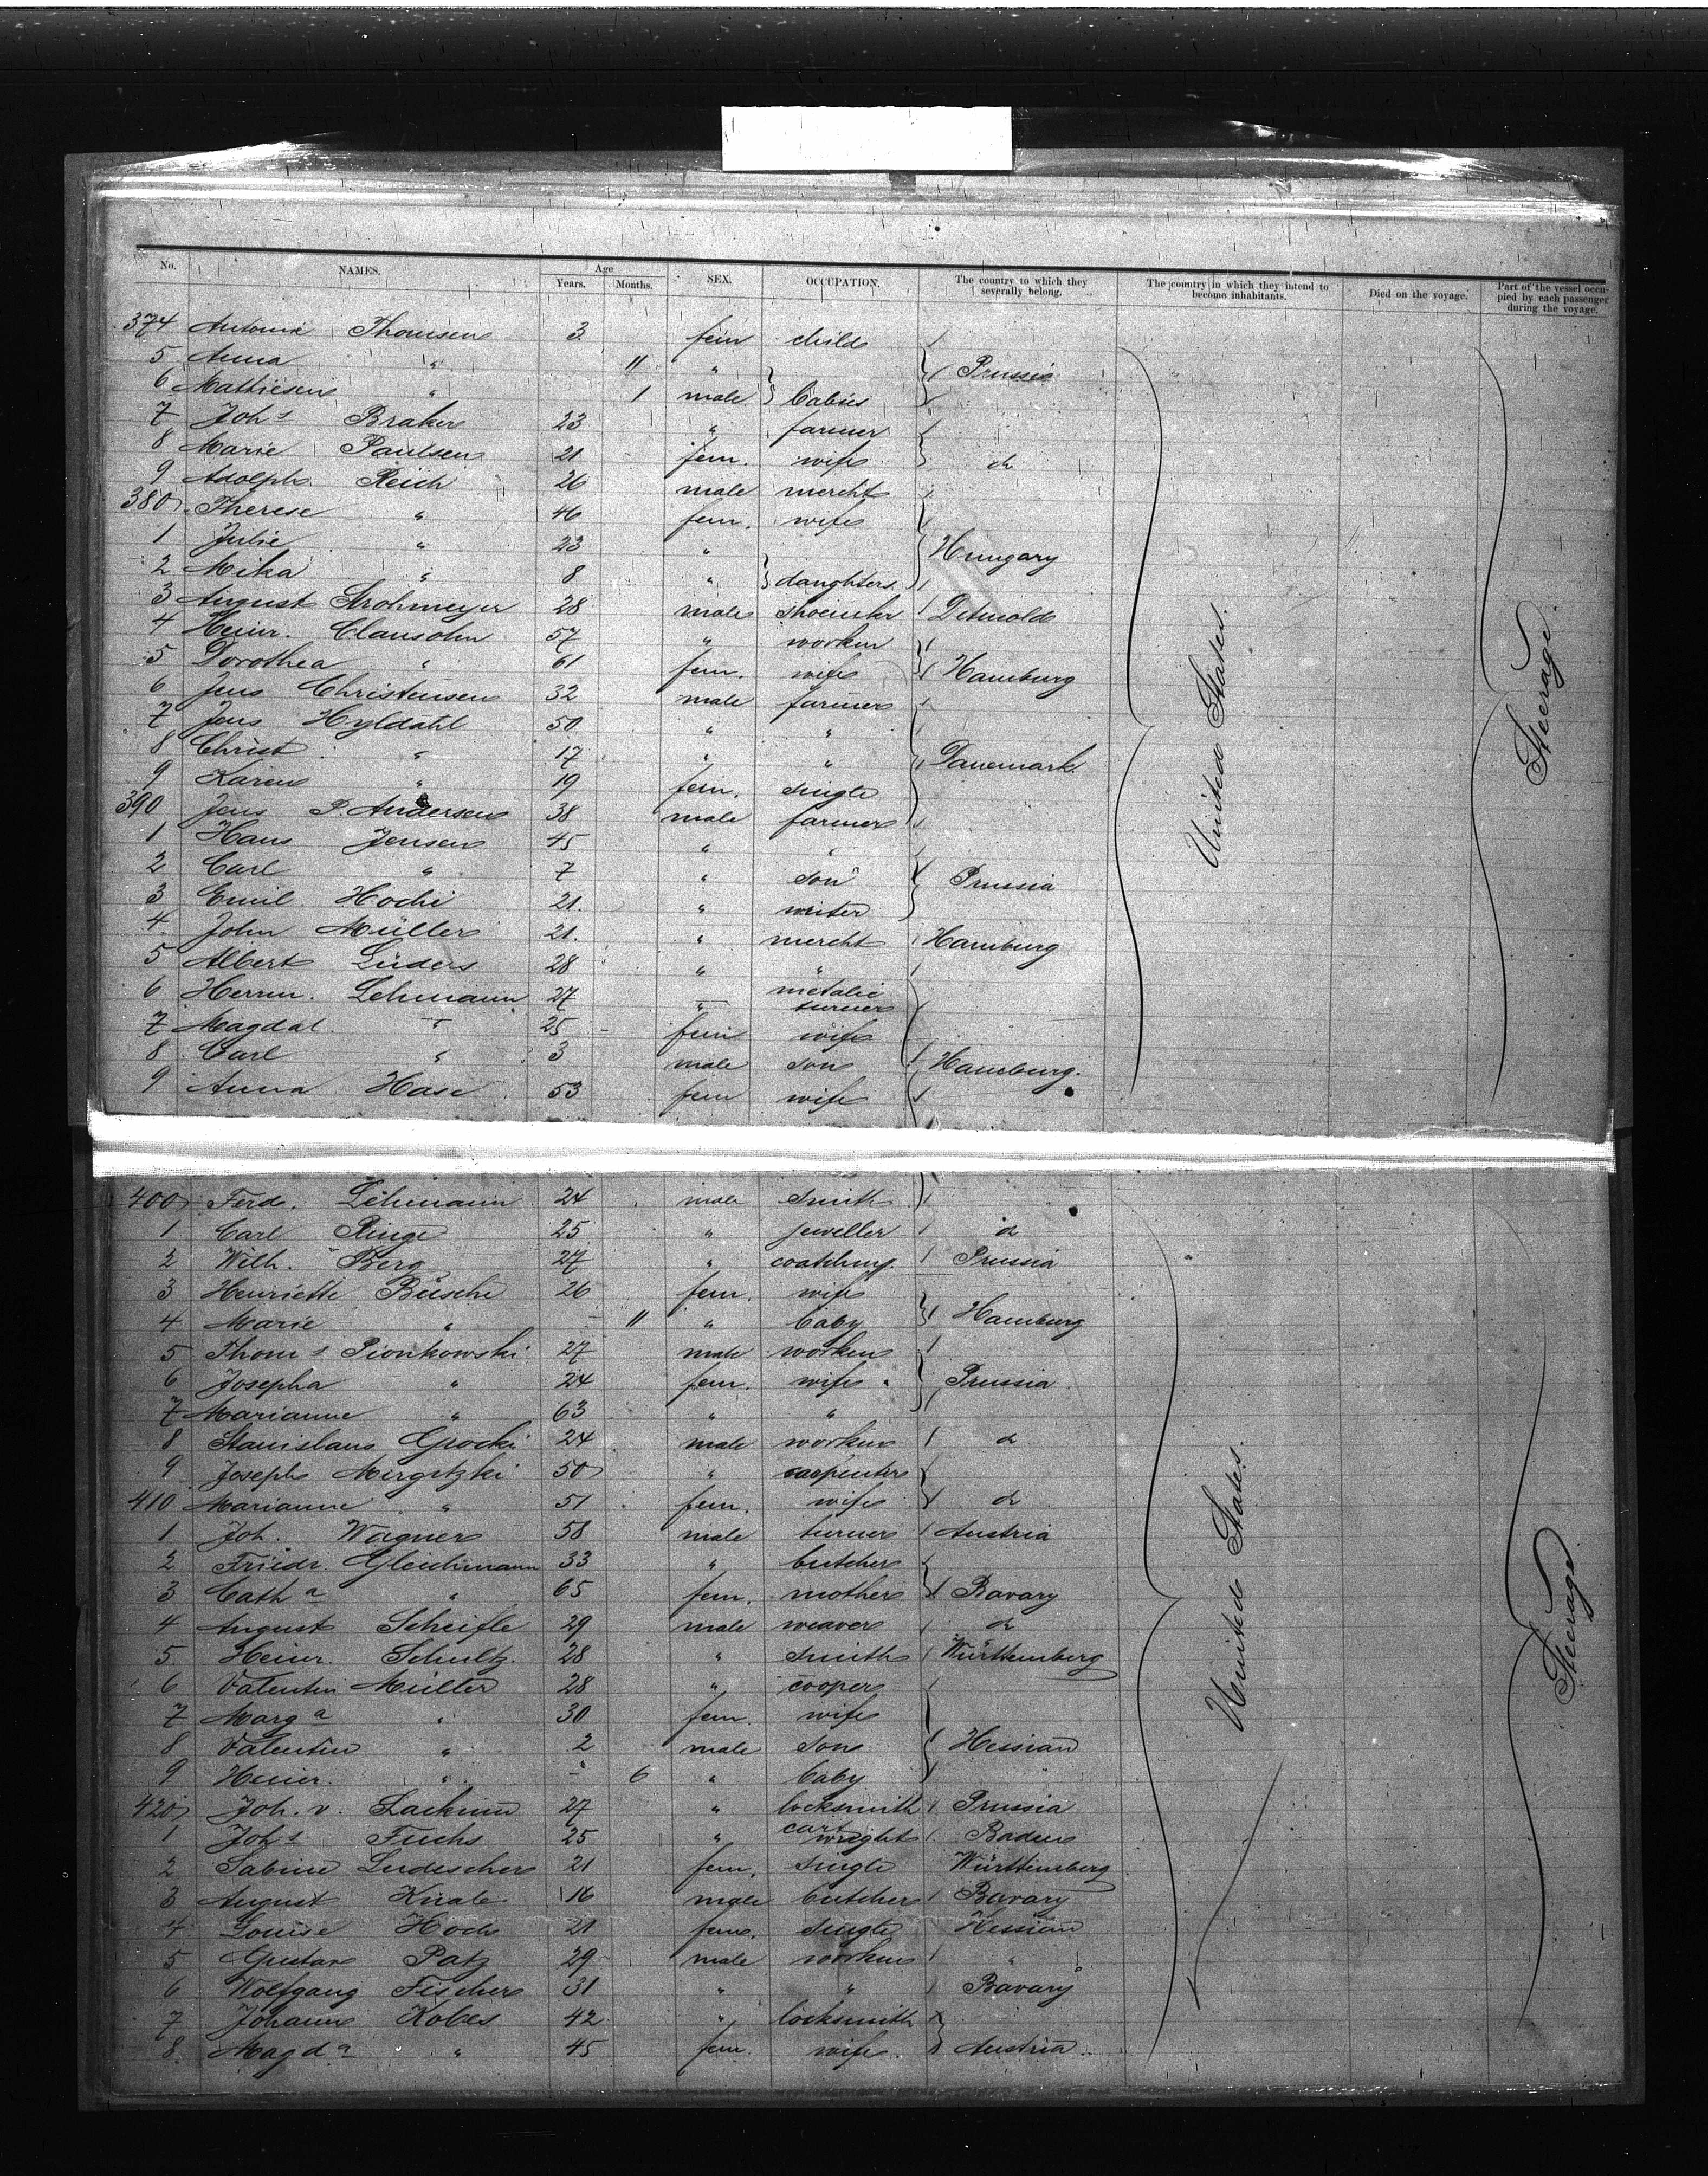 No. NAMES. Age SEX. OCCUPATION. The country to which they severally belong. The country in which they intend to become inhabitants. Died on the voyage. Part of the vessel occupied by each passenger during the voyage.
Years. Months.
374 Antonie Thomsen 3 fem child
5 Anna " 11 " Prussia
6 Mathiesen " 1 male babies
7 Johs Braker 23 " farmer
8 Marie Paulsen 21 fem. wife do
9 Adolph Reich 26 male mercht
380 Therese " 46 fem. wife
1 Julie " 23 " Hungary
2 Mika " 8 " daughters
3 August Strohmeyer 28 male shoemker Detmold
4 Heinr. Clausohm 57 " workm
5 Dorothea " 61 fem. wife Hamburg
6 Jens Christensen 32 male farmer
7 Jens Hyldahl 50 " "
8 Christ " 17 " " Danemark
9 Karen " 19 fem. single
390 Jens P. Andersen 38 male farmer
1 Hans Jensen 45 " "
2 Carl " 7 " son Prussia
3 Emil Hochi 21. " writer
4 John Müller 21. " mercht Hamburg
5 Albert Lüders 28 " "
6 Herrm. Lehmann 27 " metalic turner
7 Magdal " 25 fem wife
8 Carl " 3 male son Hamburg.
9 Anna Hase 53 fem wife
United States.
Steerage
400 Ferd. Lehmann 24 male smith
1 Carl Ringe 25 " jeweller do
2 Wilh. Berg 27 " coachmn Prussia
3 Henriette Büsche 26 fem. wife
4 Marie " - 11 " baby Hamburg
5 Thoms Pionkowski 27 male workm
6 Josepha " 24 fem. wife Prussia
7 Marianne " 63 " "
8 Stanislaus Grocki 24 male workm do
9 Joseph Mirgitzki 50 " carpenter
410 Marianne " 51 fem. wife do
1 Joh. Wagner 58 male turner Austria
2 Friedr. Gleichmann 33 " butcher
3 Catha " 65 fem. mother Bavary
4 August Scheifle 29 male weaver do
5 Heinr. Schultz 28 " smith Württemberg
6 Valentin Müller 28 " cooper
7 Marga " 30 fem. wife
8 Valentin " 2 male son Hessian
9 Heinr. " - 6 " baby
420 Joh. v. Lackum 27 " locksmith Prussia
1 Johs Fuchs 25 " cartwright Baden
2 Sabine Ludescher 21 fem. single Württemberg
3 August Knabe 16 male butcher Bavary
4 Louise Hoch 21 fem. single Hessian
5 Gustav Patz 29 male workm "
6 Wolfgang Fischer 31 " " Bavary
7 Johann Kobes 42 " locksmith
8 Magda " 45 fem. wife Austria
United States.
Steerage